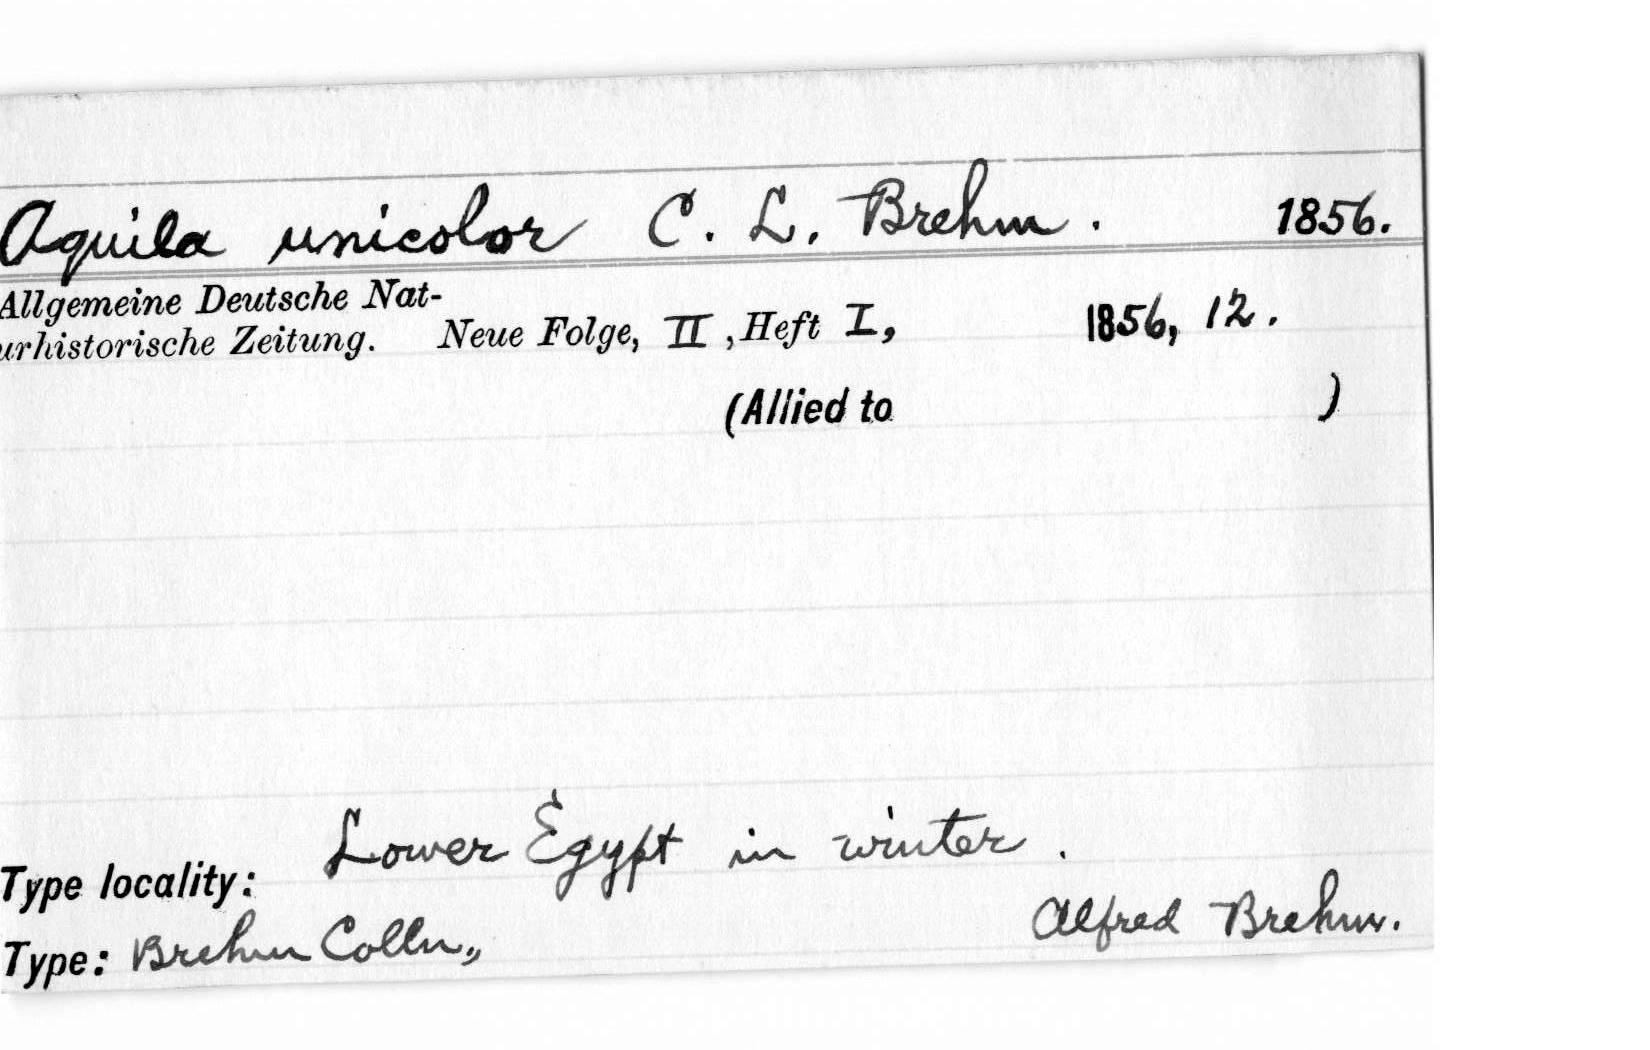 Aquila unicolor C. L. Brehm. 1856.
Allgemeine Deutsche Nat-
urhistorische Zeitung. Neue Folge, II, Heft I, 1856, 12.
(Allied to )
Type locality: Lower Egypt in winter.
Type: Brehm Colln,, Alfred Brehm.